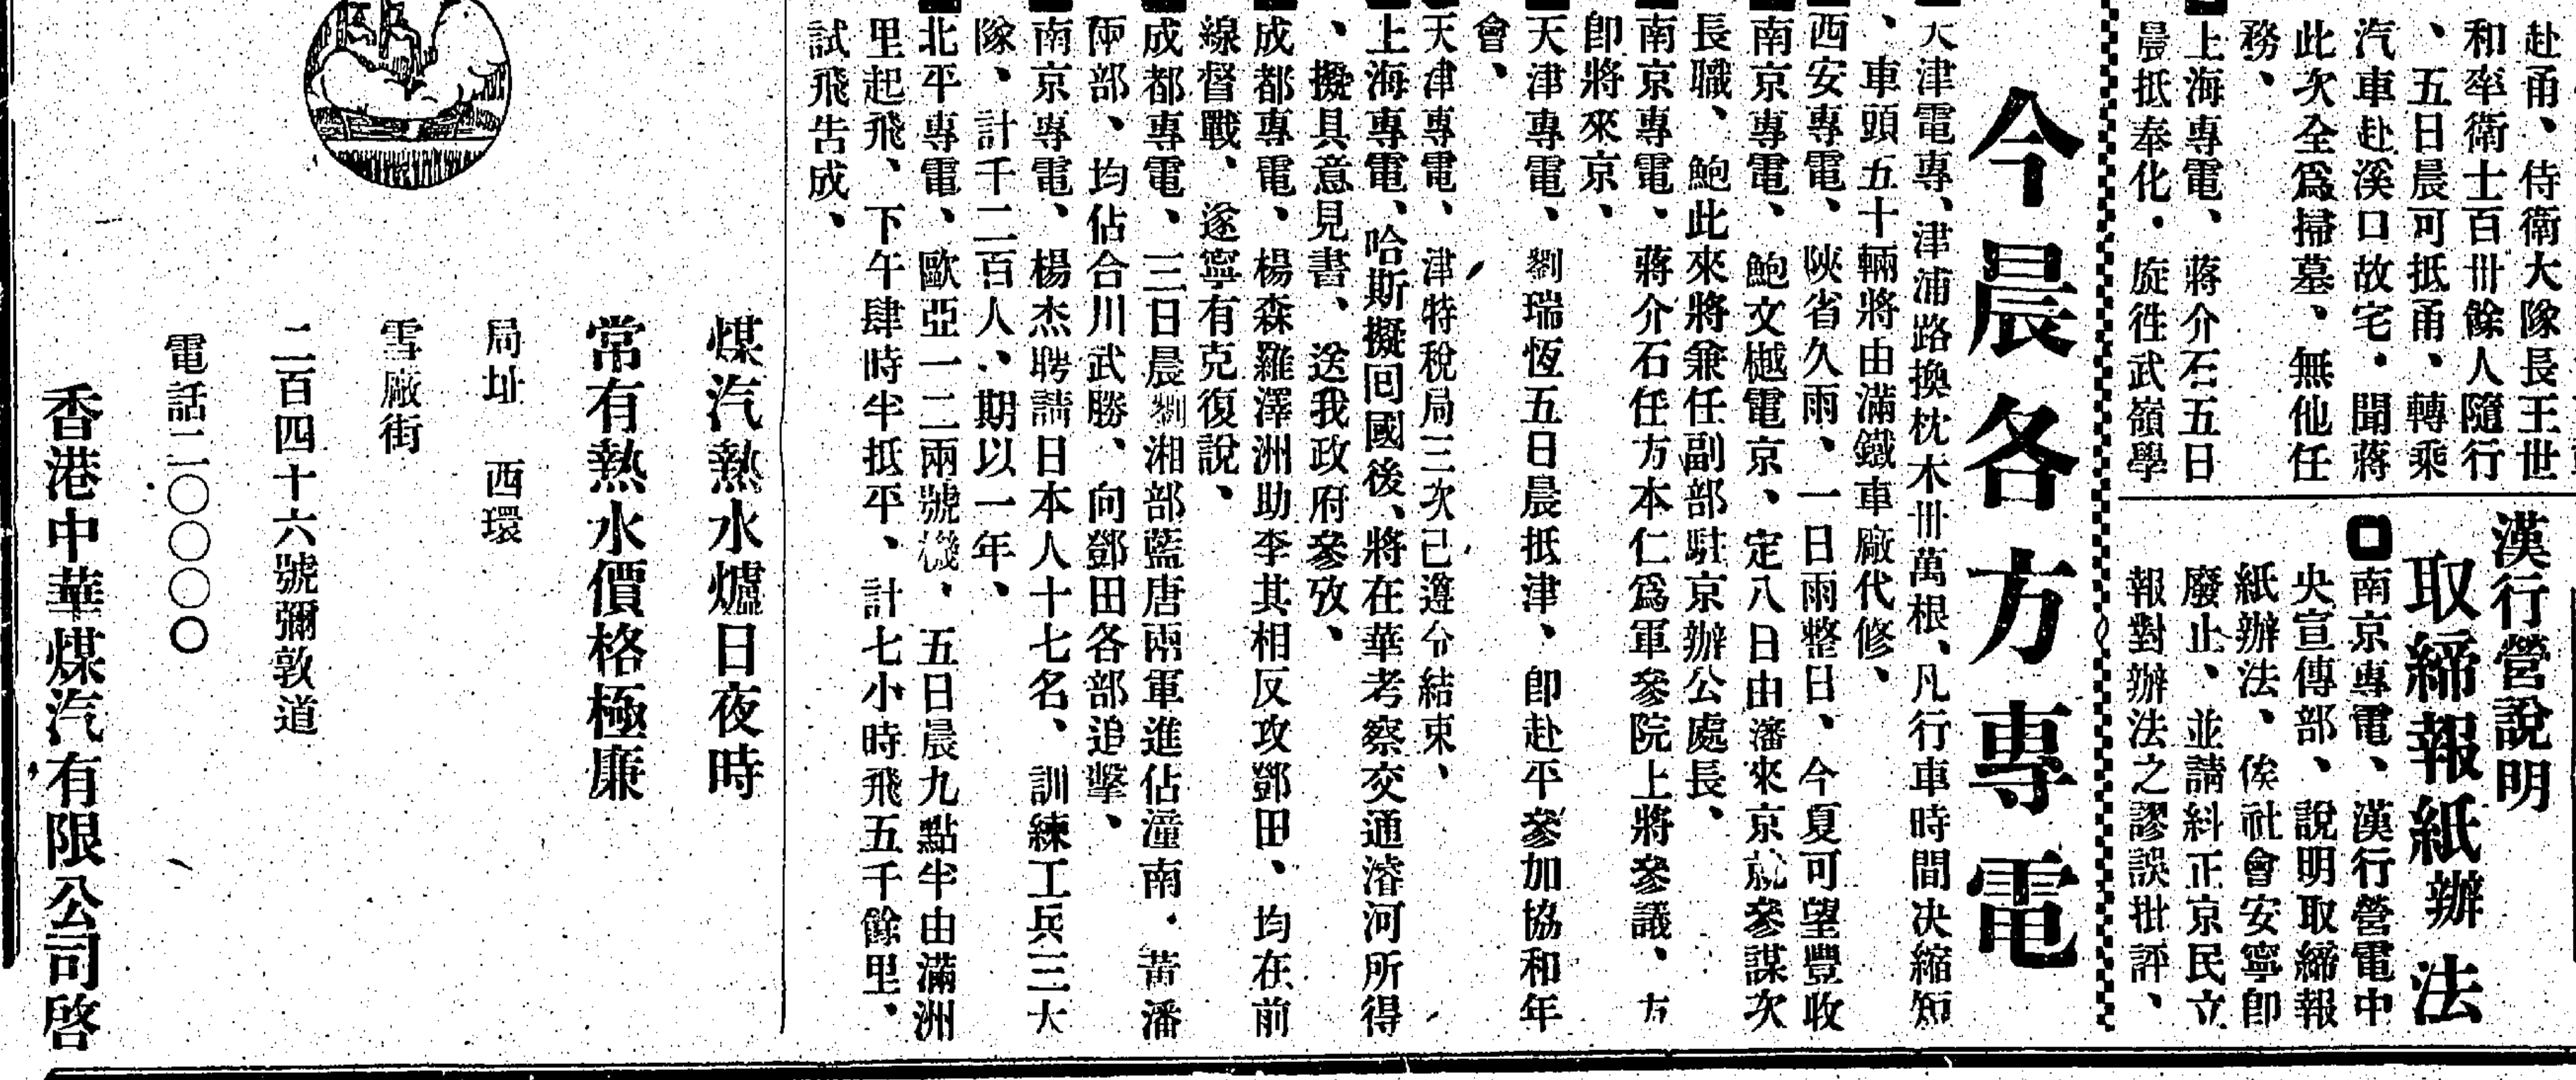 赴甬、侍衛大隊長王世
和率衛士百卅餘人隨行
、五日晨可抵甬、轉乘
汽車赴溪口故宅・聞蔣
此次全爲掃墓、無他任
務、
上海專電、蔣介石五日
晨抵奉化・旋徃武嶺學
漢行營說明
取締報紙辦法
南京專電、漢行營電中
央宣傳部、說明取締報
紙辦法、俟社會安寧卽
廢止、並請糾正京民立
報對辦法之謬誤批評、
今晨各方專電
天津電專、津浦路換枕木卅萬根、凡行車時間决縮短
、車頭五十輛將由滿鐵車廠代修、
西安專電、陝省久雨、一日雨整日、今夏可望豐收
南京專電、鮑文樾電京、定八日由瀋來京就參謀次
長職、鮑此來將兼任副部駐京辦公處長、
南京專電、蔣介石任方本仁爲軍參院上將參議、方
卽將來京、
天津專電、劉瑞恆五日晨抵津、卽赴平參加協和年
會、
天津專電、津特稅局三次已遵令結束、
上海專電、哈斯擬囘國後、將在華考察交通濬河所得
、擬具意見書、送我政府參攷、
成都專電、楊森羅澤洲助李其相反攻鄧田、均在前
線督戰、遂寧有克復說、
成都專電、三日晨劉湘部藍唐兩軍進佔潼南・黃潘
兩部、均佔合川武勝、向鄧田各部追擊、
南京專電、楊杰聘請日本人十七名、訓練工兵三大
隊、計千二百人、期以一年、
北平專電、歐亞一二兩號機・五日晨九點半由滿洲
里起飛、下午肆時半抵平、計七小時飛五千餘里、
試飛告成、
煤汽熱水爐日夜時
常有熱水價格極廉
局址　西環
雪廠街
二百四十六號彌敦道
電話二〇〇〇〇
香港中華煤汽有限公司啓